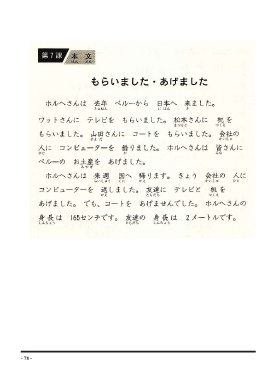 第7課 本文
もらいました・あげました
ホルヘさんは 去年 ペルーから 日本へ 来ました。
ワットさんに テレビを もらいました。松本さんに 机を
もらいました。山田さんに コートを もらいました。会社の
人に コンピューターを 借りました。ホルヘさんは 皆さんに
ペルーの お土産を あげました。
ホルヘさんは 来週 国へ 帰ります。きょう 会社の 人に
コンピューターを 返しました。友達に テレビと 机を
あげました。でも、コートを あげませんでした。ホルヘさんの
身長は 165センチです。友達の 身長は 2メートルです。